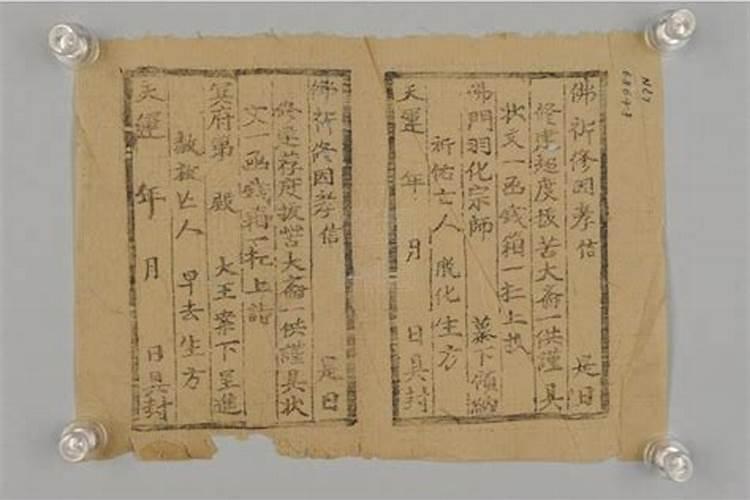 佛祈修因孝信 是日
修建超度拔苦大齋一供謹具
狀文一函錢箱一扛上
佛門羽化宗師 幕下領納
祈佑亡人 脱化生方
天運 年 月 日具封
佛祈修因孝信 是日
修建荐度拔苦大齋一供謹具状
文一函錢箱一扛上詣
冥府第 殿 大王案下呈進
赦拔亡人 早去生方
天運 年 月 日具封